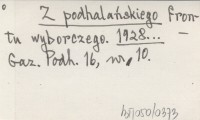 Z podhalańskiego fron-
tu wyborczego. 1928...
Gaz. Podh. 16, nr, 10.
bj/050/0373